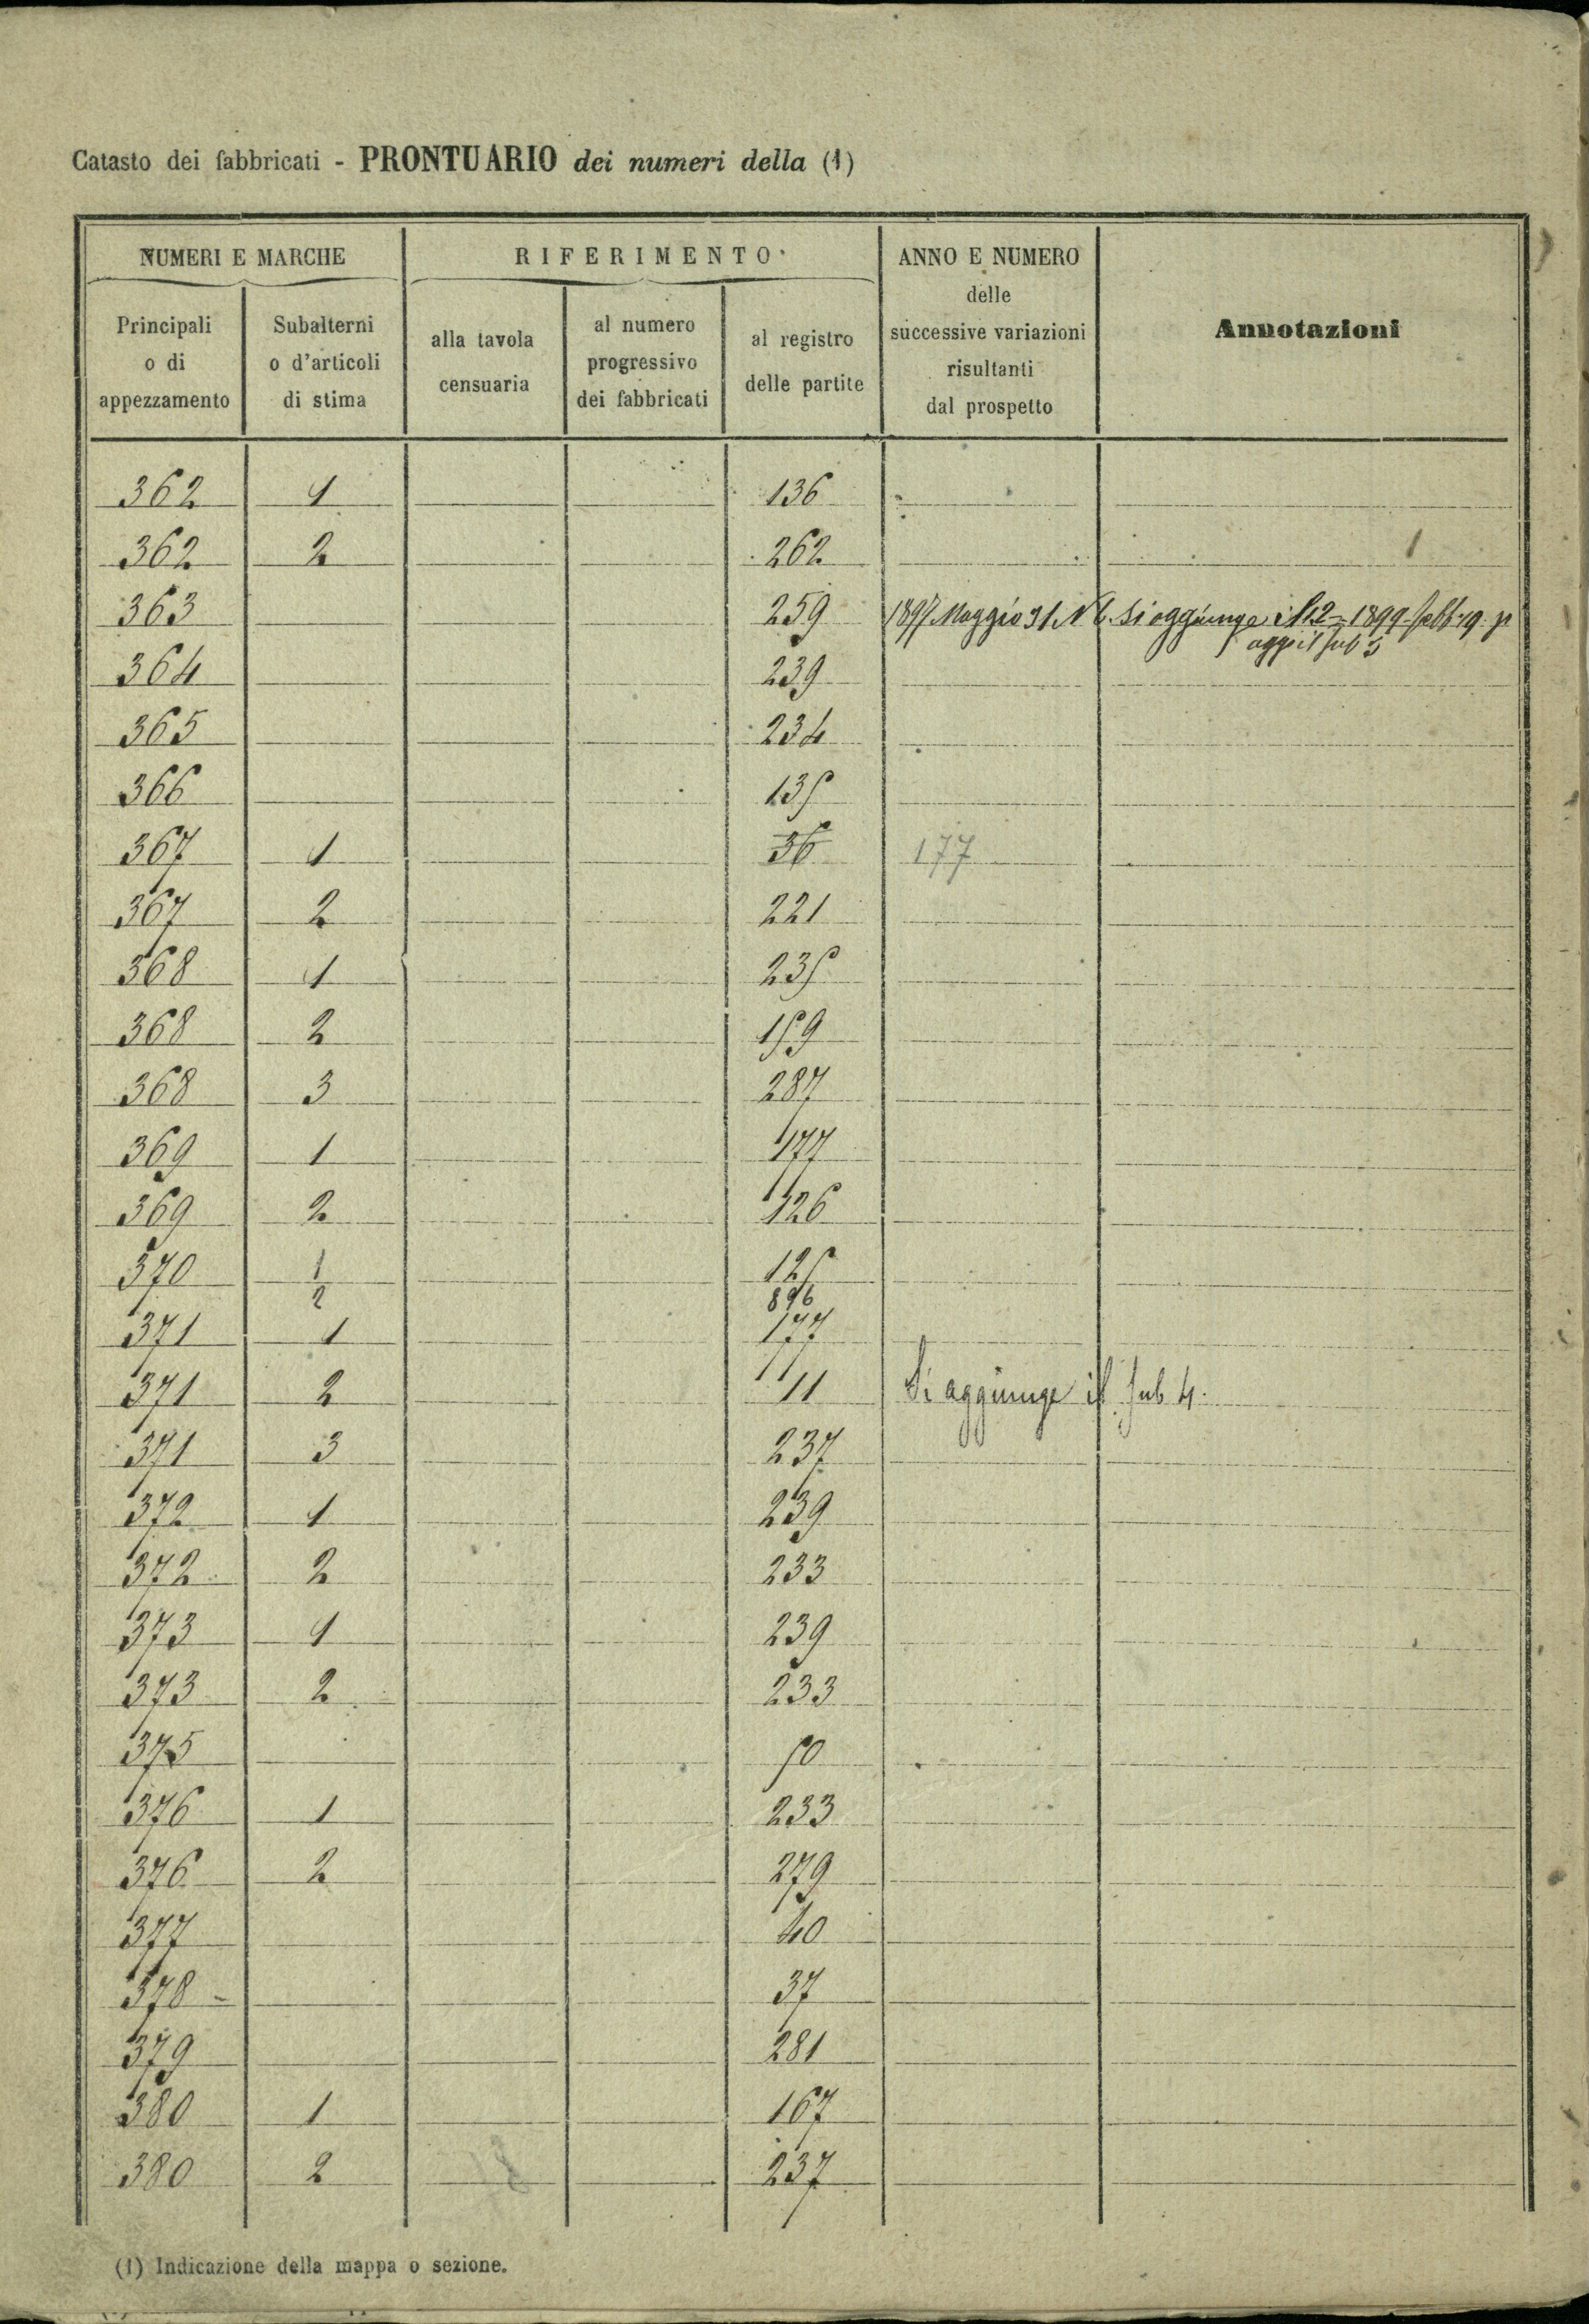 Catasto dei fabbricati - PRONTUARIO dei numeri della (1)
NUMERI E MARCHE
RIFERIMENTO
ANNO E NUMERO
delle
successive variazioni
risultanti
dal prospetto
Annotazioni
Principali
o di
appezzamento
Subalterni
o d'articoli
di stima
alla tavola
censuaria
al numero
progressivo
dei fabbricati
al registro
delle partite
362 1 136
362 2 262
363 259 1897 Maggio 31 N 6. Si aggiunge il 2 = 1899
il sub 3
364 239
365 234
366 135
367 1 36 177
367 2 221
368 1 235
368 2 159
368 3 287
369 1 177
369 2 126
370 1 125
2 896
371 1 177
371 2 11 Si aggiunge il sub 4.
371 3 237
372 1 239
372 2 233
373 1 239
373 2 233
375 50
376 1 233
376 2 279
377 40
378 - 37
379 281
380 1 167
380 2 237
(1) Indicazione della mappa o sezione.